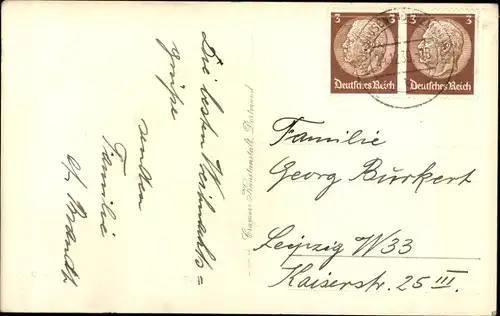 Die besten Weihnachts=
grüße
senden
Familie
Brandt
Cramers Kunstanstalt, Dortmund
3
3
Deutsches Reich
Deutsches Reich
Familie
Georg Burkert
Leipzig W33
Kaiserstr. 25 III